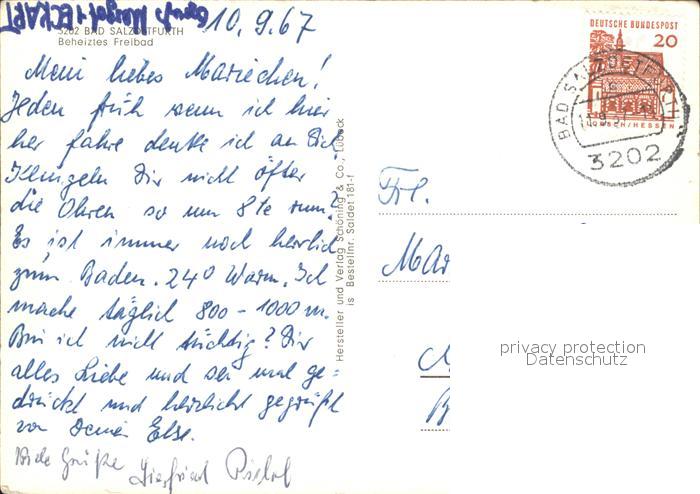 Gruß Margot + ECKART
10.9.67
3202 BAD SALZDETFURTH
Beheiztes Freibad
Mein liebes Mariechen!
Jeden früh wenn ich hier
her fahre denke ich an Dich
Klingeln Dir nicht öfter
die Ohren so um 8te rum?
Es ist immer noch herrlich
zum Baden. 240 Warm. Ich
mache täglich 800 - 1000 m.
Bin ich nicht tüchtig? Dir
alles Liebe und sei mal ge=
drückt und herzlichst gegrüßt
von Deiner Else.
Viele Grüße Siegfried
Hersteller und Verlag Schöning & Co., Lübeck
is Bestellnr. Saldet 181-f
DEUTSCHE BUNDESPOST
20
LORSCH/HESSEN
BAD SALZDETFURTH
3202
Frl.
Mar
privacy protection
Datenschutz